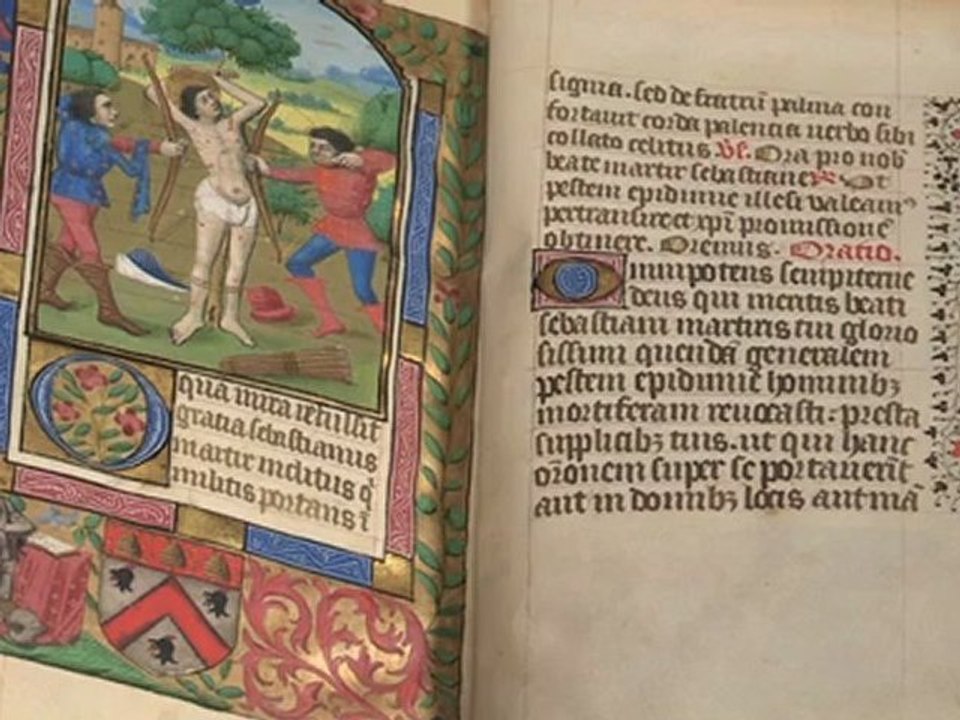 O qua mira refulsit
gratia sebastianus
martir inclitus q̉
militis portans ī
signia. sed de fratrū palma con
fortauit corda palencia uerbo sibi
collato celitus V̄s. Ora pro nob̄
beate martir sebastiane R̄ Vt
pestem epidimie illesi valeamꝰ
pertransire et xp̄i promissionē
obtinere. Oremus. Oratio.
Omnipotens sempiterne
deus qui meritis beati
sebastiani martiris tui glorio
sissimi quendā generalem
pestem epidimiē hominibꝫ
mortiferam reuocasti: presta
supplicibꝫ tuis. ut qui hanc
or̄onem super se portauerīt
aut in domibꝫ locis aut mā